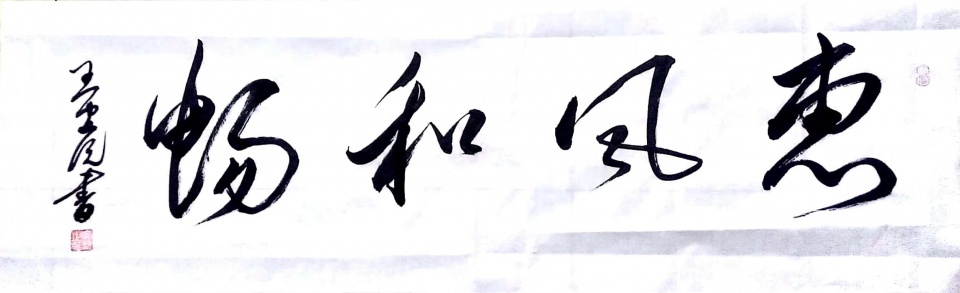 惠风和畅
书